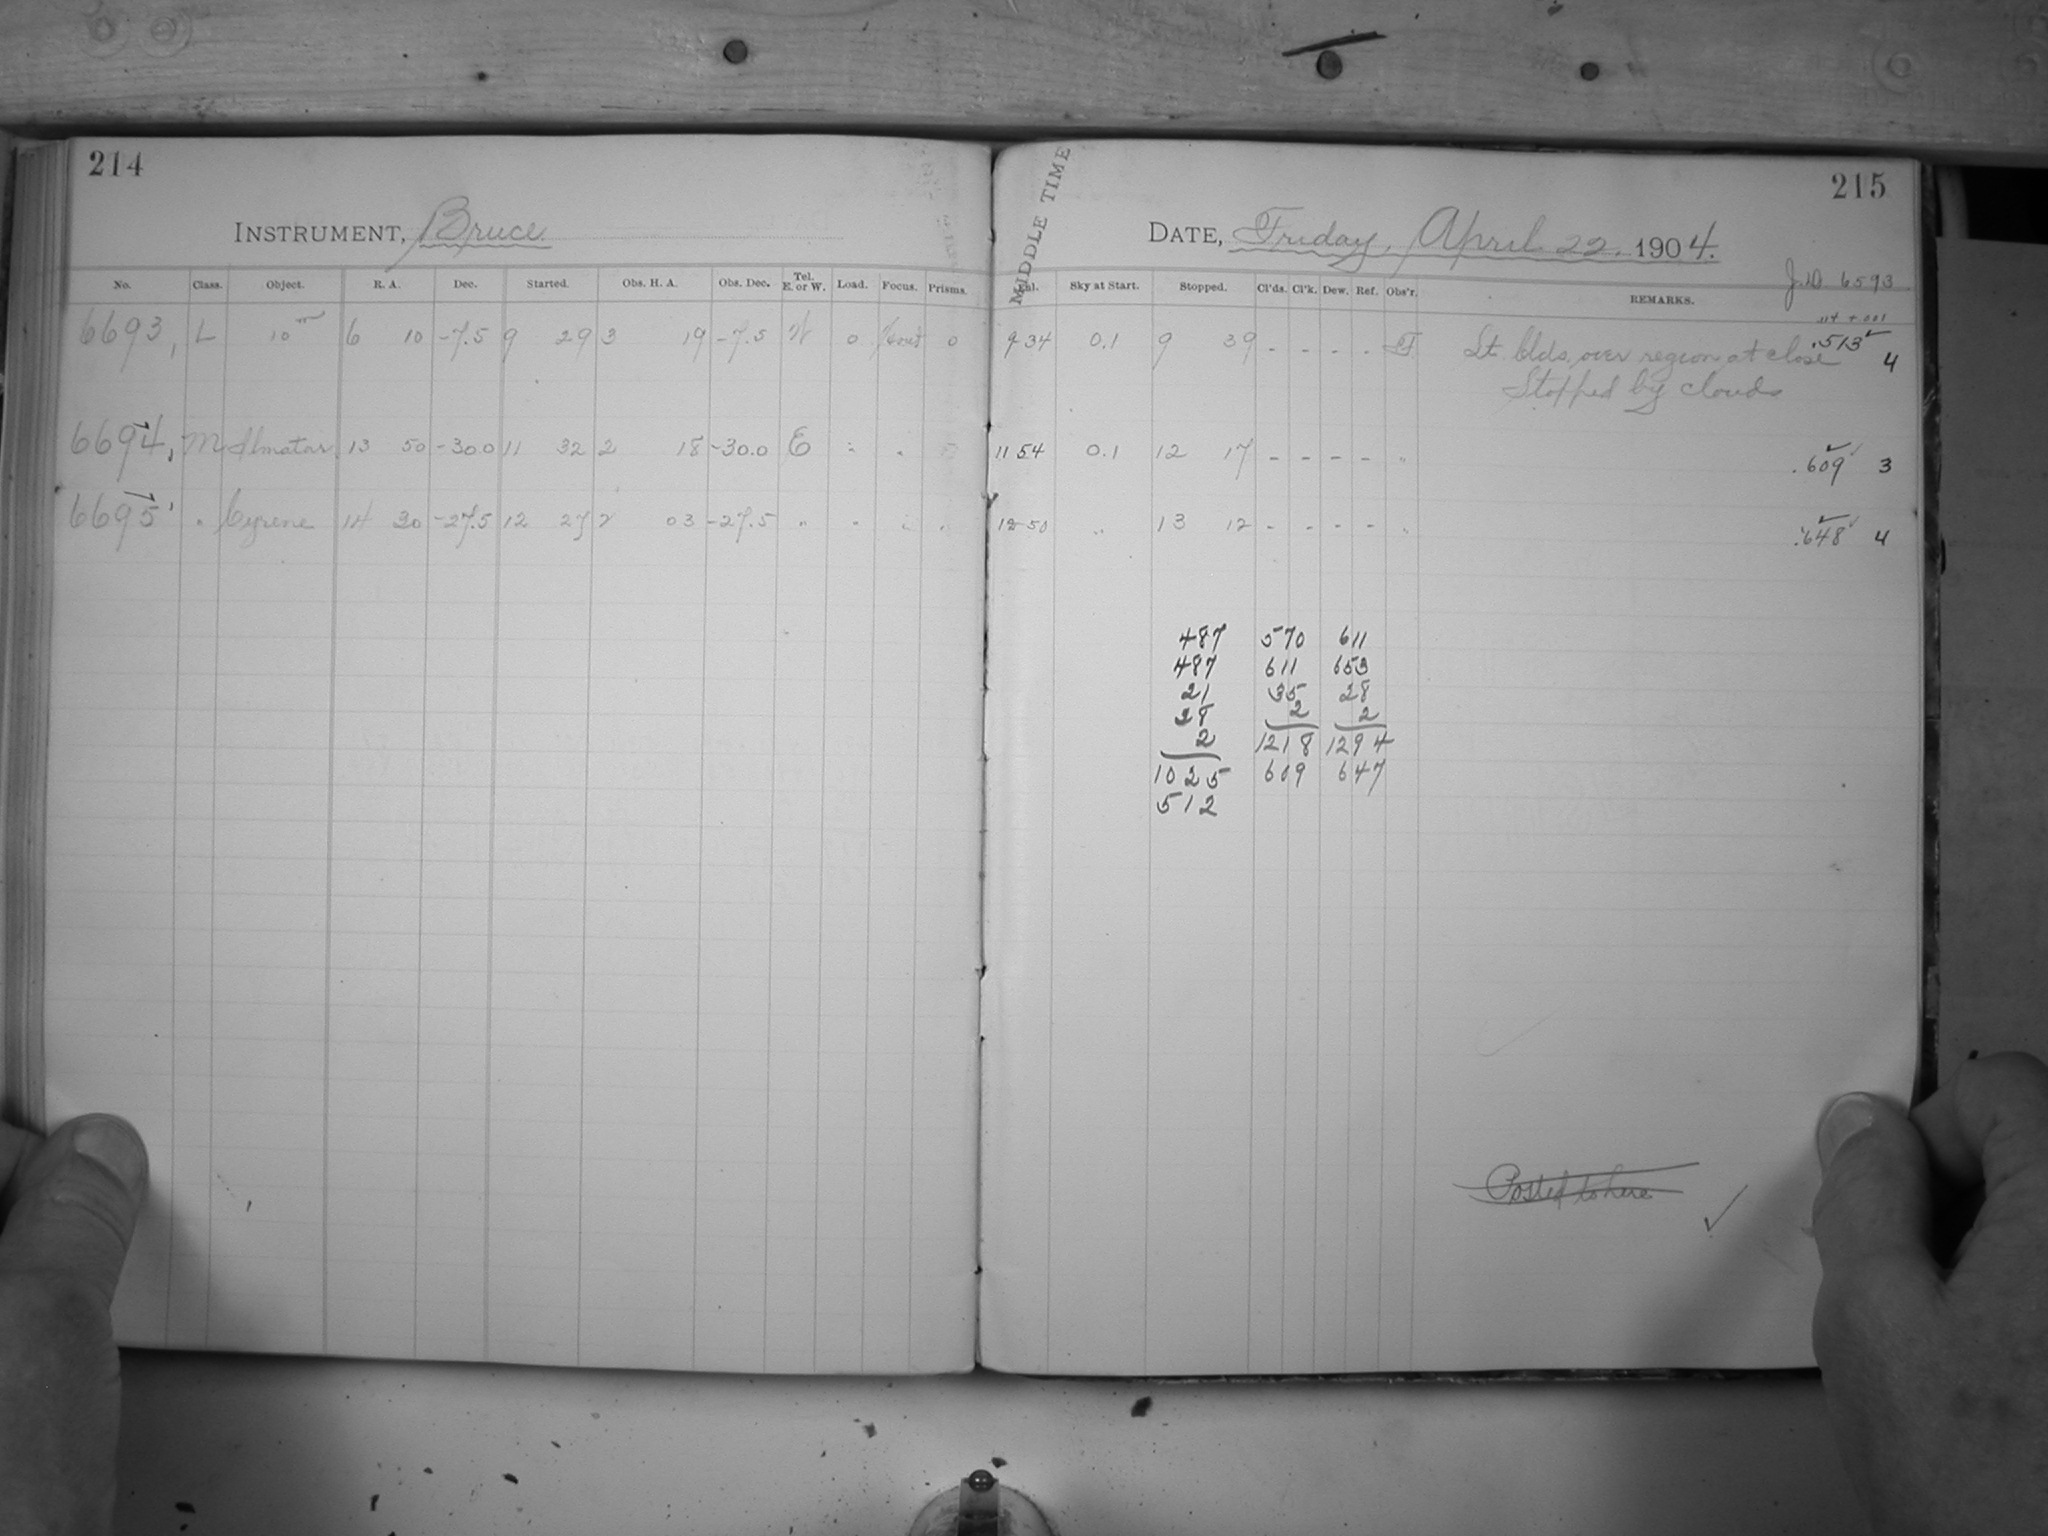 214
INSTRUMENT, Bruce.
No. Class. Object. R. A. Dec. Started. Obs. H. A. Obs. Dec. Tel. E. or W. Load. Focus. Prisms.
6693, L 10m 6 10 -7.5 9 29 3 19 -7.5 W 0 0
6694, M Ilmatar 13 50 -30.0 11 32 2 18 -30.0 E " "
6695, " Cyrene 14 30 -27.5 12 27 2 03 -27.5 " " " "
215
MIDDLE TIME
DATE, Friday, April 22, 1904.
J.D. 6593
Sky at Start. Stopped. Cl'ds. Cl'k. Dew. Ref. Obs'r. REMARKS.
+.001
9 34 0.1 9 39 - - - - Lt. clds. over region at close .513 4
Stopped by clouds
11 54 0.1 12 17 - - - - " .609 3
12 50 " 13 12 - - - - " .648 4
487 570 611
487 611 653
21 35 28
28 2 2
2 1218 1294
1025 609 647
512
Posted to here